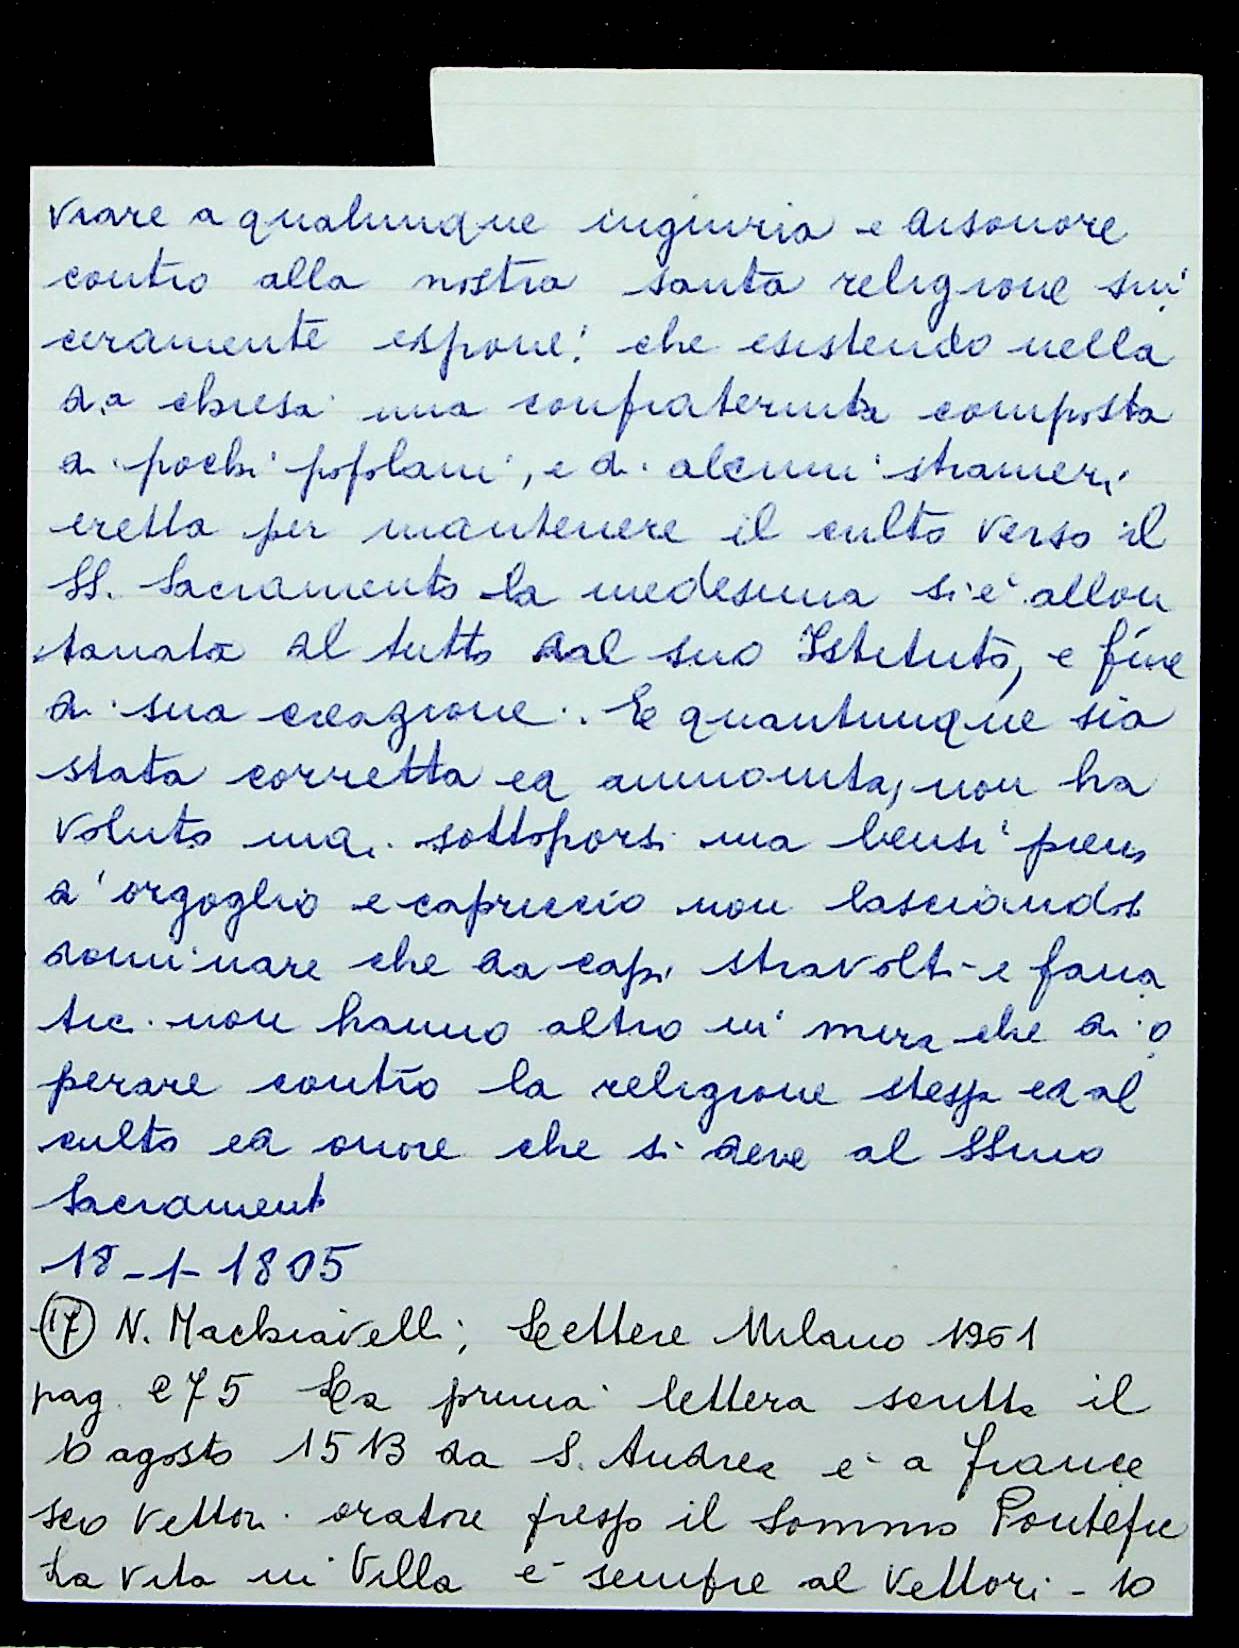 viare a qualunque ingiuria e disonore
contro alla nostra santa religione sin
ceramente espone: che esistendo nella
d.a chiesa una confraternita composta
di pochi popolani, e di alcuni stranieri
eretta per mantenere il culto verso il
SS. Sacramento la medesima si è allon
tanata al tutto dal suo Istituto, e fine
di sua creazione. E quantunque sia
stata corretta ed ammonita, non ha
voluto mai sottoporsi ma bensì pieno
d'orgoglio e capriccio non lasciandosi
dominare che da capi stravolti e fana
tici non hanno altro in mira che di o
perare contro la religione stessa ed al
culto ed onore che si deve al SSmo
Sacrament
18-1-1805
(17) N. Machiavelli; Lettere Milano 1961
pag. 275 La prima lettera scritta il
10 agosto 1513 da S. Andrea è a France
sco Vettori oratore presso il Sommo Pontefic
La vita in Villa è sempre al Vettori - 10